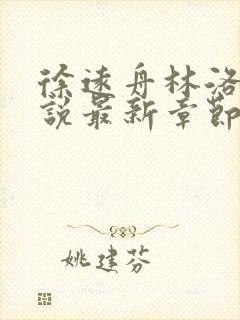 徐遠舟林洛
說最新章節
姚建芬